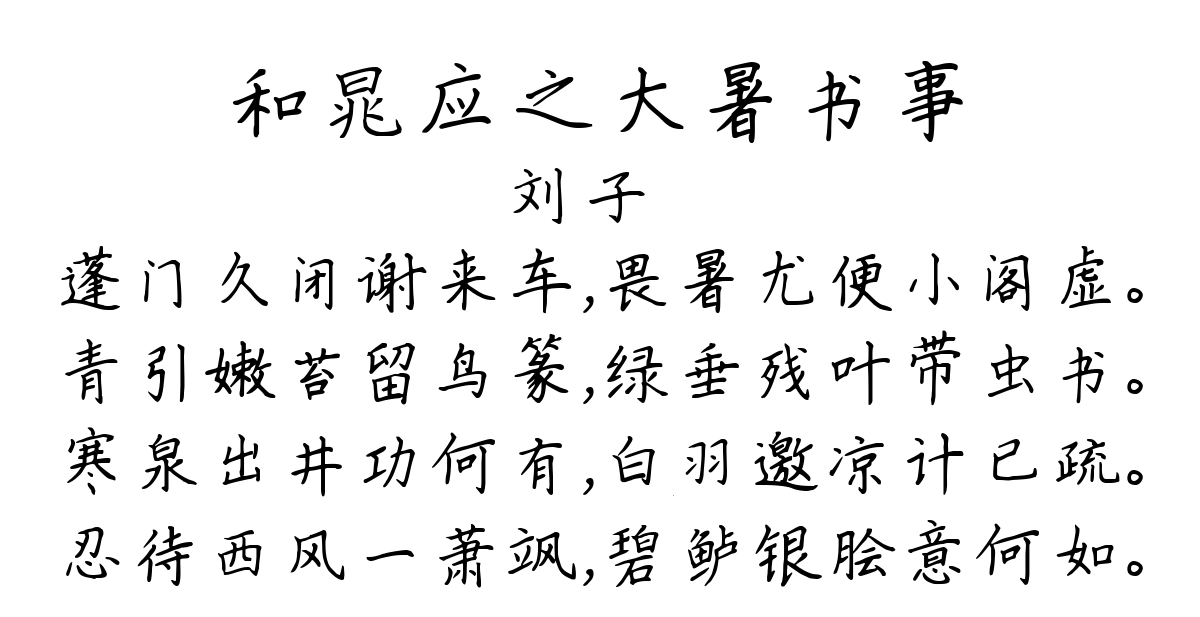 和晁应之大暑书事
刘子
蓬门久闭谢来车,畏暑尤便小阁虚。
青引嫩苔留鸟篆,绿垂残叶带虫书。
寒泉出井功何有,白羽邀凉计已疏。
忍待西风一萧飒,碧鲈银脍意何如。